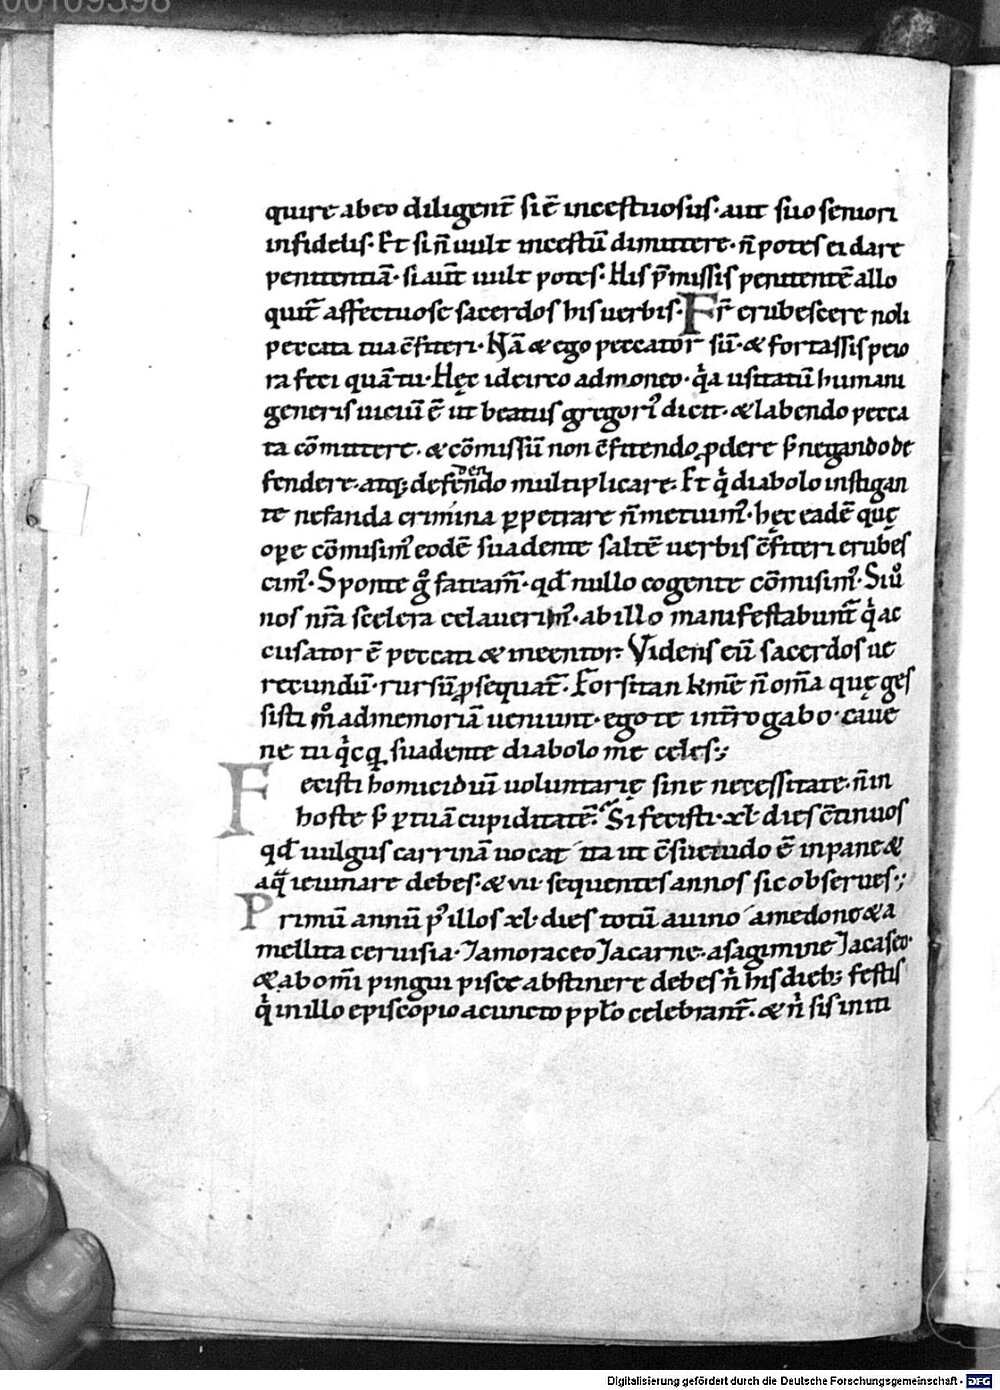 00109398
quire ab eo diligent̄ si ē incestuosus· aut suo seniori
infidelis· Et si n̄ uult incestū dimittere· n̄ potes ei dare
penitentiā· si aut̄ uult potes· His p̄missis penitentē allo
quit̄ affectuose sacerdos his uerbis· Fr̄ erubescere noli
peccata tua c̄fiteri· Nā & ego peccator sū· & fortassis peio
ra feci quā tu· Hęc idcirco admoneo· q̇a usitatū humani
generis uiciū ē ut beatus gregori᾽ dicit· & labendo pecca
ta cōmittere· & cōmissū non c̄fitendo ꝓdere s̄ negando de
fendere· atq; defendendo multiplicare· Et q̇ diabolo instigan
te nefanda crimina ꝑpetrare n̄ metuim᾽· hęc eadē quę
oꝑe cōmisim᾽ eodē suadente saltē uerbis c̄fiteri erubes
cim᾽· Sponte g̊ fateam̄· qd̄ nullo cogente cōmisim᾽· Si ů
nos nr̄a scelera celauerim᾽· ab illo manifestabunt̄ q̇ ac
cusator ē peccati & incentor· Videns eū sacerdos ue
recundū· rursū ꝓsequat̄· Forsitan kr̄me n̄ om̄a quę ges
sisti m̊ ad memoriā ueniunt· ego te int̄rogabo· caue
ne tu q̇cq̣ suadente diabolo me celes·;
Fecisti homicidiū uoluntarię sine necessitate· n̄ in
hoste s̄ ꝑ tuā cupiditatē· Si fecisti· xl· dies c̄tinuos
qd̄ uulgus carrinā uocat ita ut c̄suetudo ē in pane &
aq̄ ieiunare debes· & vii· sequentes annos sic obserues·;
Primū annū p᾽ illos xl· dies totū a uino a medone & a
mellita ceruisia·
& ab om̄i pingui pisce abstinere debes n̄ his dieb; festis
q̇ in illo episcopio a cuncto ppl̄o celebrant̄· & n̄ sis in iti
Digitalisierung gefördert durch die Deutsche Forschungsgemeinschaft · DFG